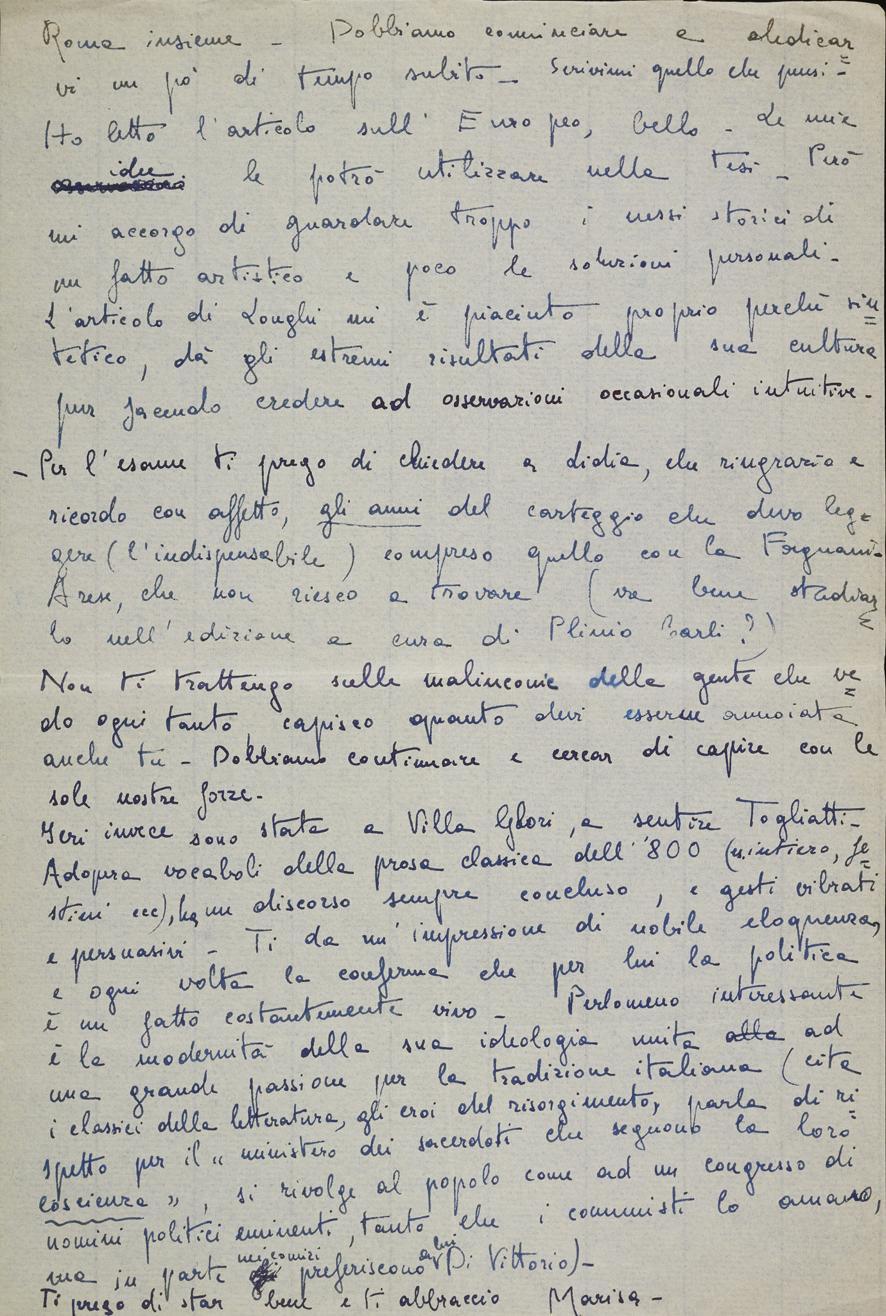 Roma insieme - Dobbiamo cominciare a dedicar=
vi un pò di tempo subito - Scrivimi quello che pensi -
Ho letto l'articolo sull' Europeo, bello - Le mie
idee le potrò utilizzare nella tesi - Però
mi accorgo di guardare troppo i nessi storici di
un fatto artistico e poco le soluzioni personali -
L'articolo di Longhi mi è piaciuto proprio perchè sin=
tetico, dà gli estremi risultati della sua cultura
pur facendo credere ad osservazioni occasionali intuitive -
- Per l'esame ti prego di chiedere a Lidia, che ringrazio e
ricordo con affetto, gli anni del carteggio che devo leg=
gere (l'indispensabile) compreso quello con la Fagnani-
Arese, che non riesco a trovare (va bene studiar=
lo nell'edizione a cura di Plinio Carli?)
Non ti trattengo sulle malinconie della gente che ve=
do ogni tanto, capisco quanto devi esserne annoiata
anche tu - Dobbiamo continuare e cercar di capire con le
sole nostre forze -
Ieri invece sono stata a Villa Glori, a sentire Togliatti -
Adopra vocaboli della prosa classica dell' '800 (n.intiero, fe=
stini ecc), ha un discorso sempre concluso, e gesti vibrati
e persuasivi - Ti da un'impressione di nobile eloquenza,
e ogni volta la conferma che per lui la politica
è un fatto costantemente vivo - Perlomeno interessante
è la modernità della sua ideologia unita alla ad
una grande passione per la tradizione italiana (cita
i classici della letteratura, gli eroi del risorgimento, parla di ri=
spetto per il " ministero dei sacerdoti che seguono la loro
coscienza ", si rivolge al popolo come ad un congresso di
uomini politici eminenti, tanto che i comunisti lo amano,
ma in parte nei comizi preferiscono a lui Di Vittorio) -
Ti prego di star bene e ti abbraccio Marisa -